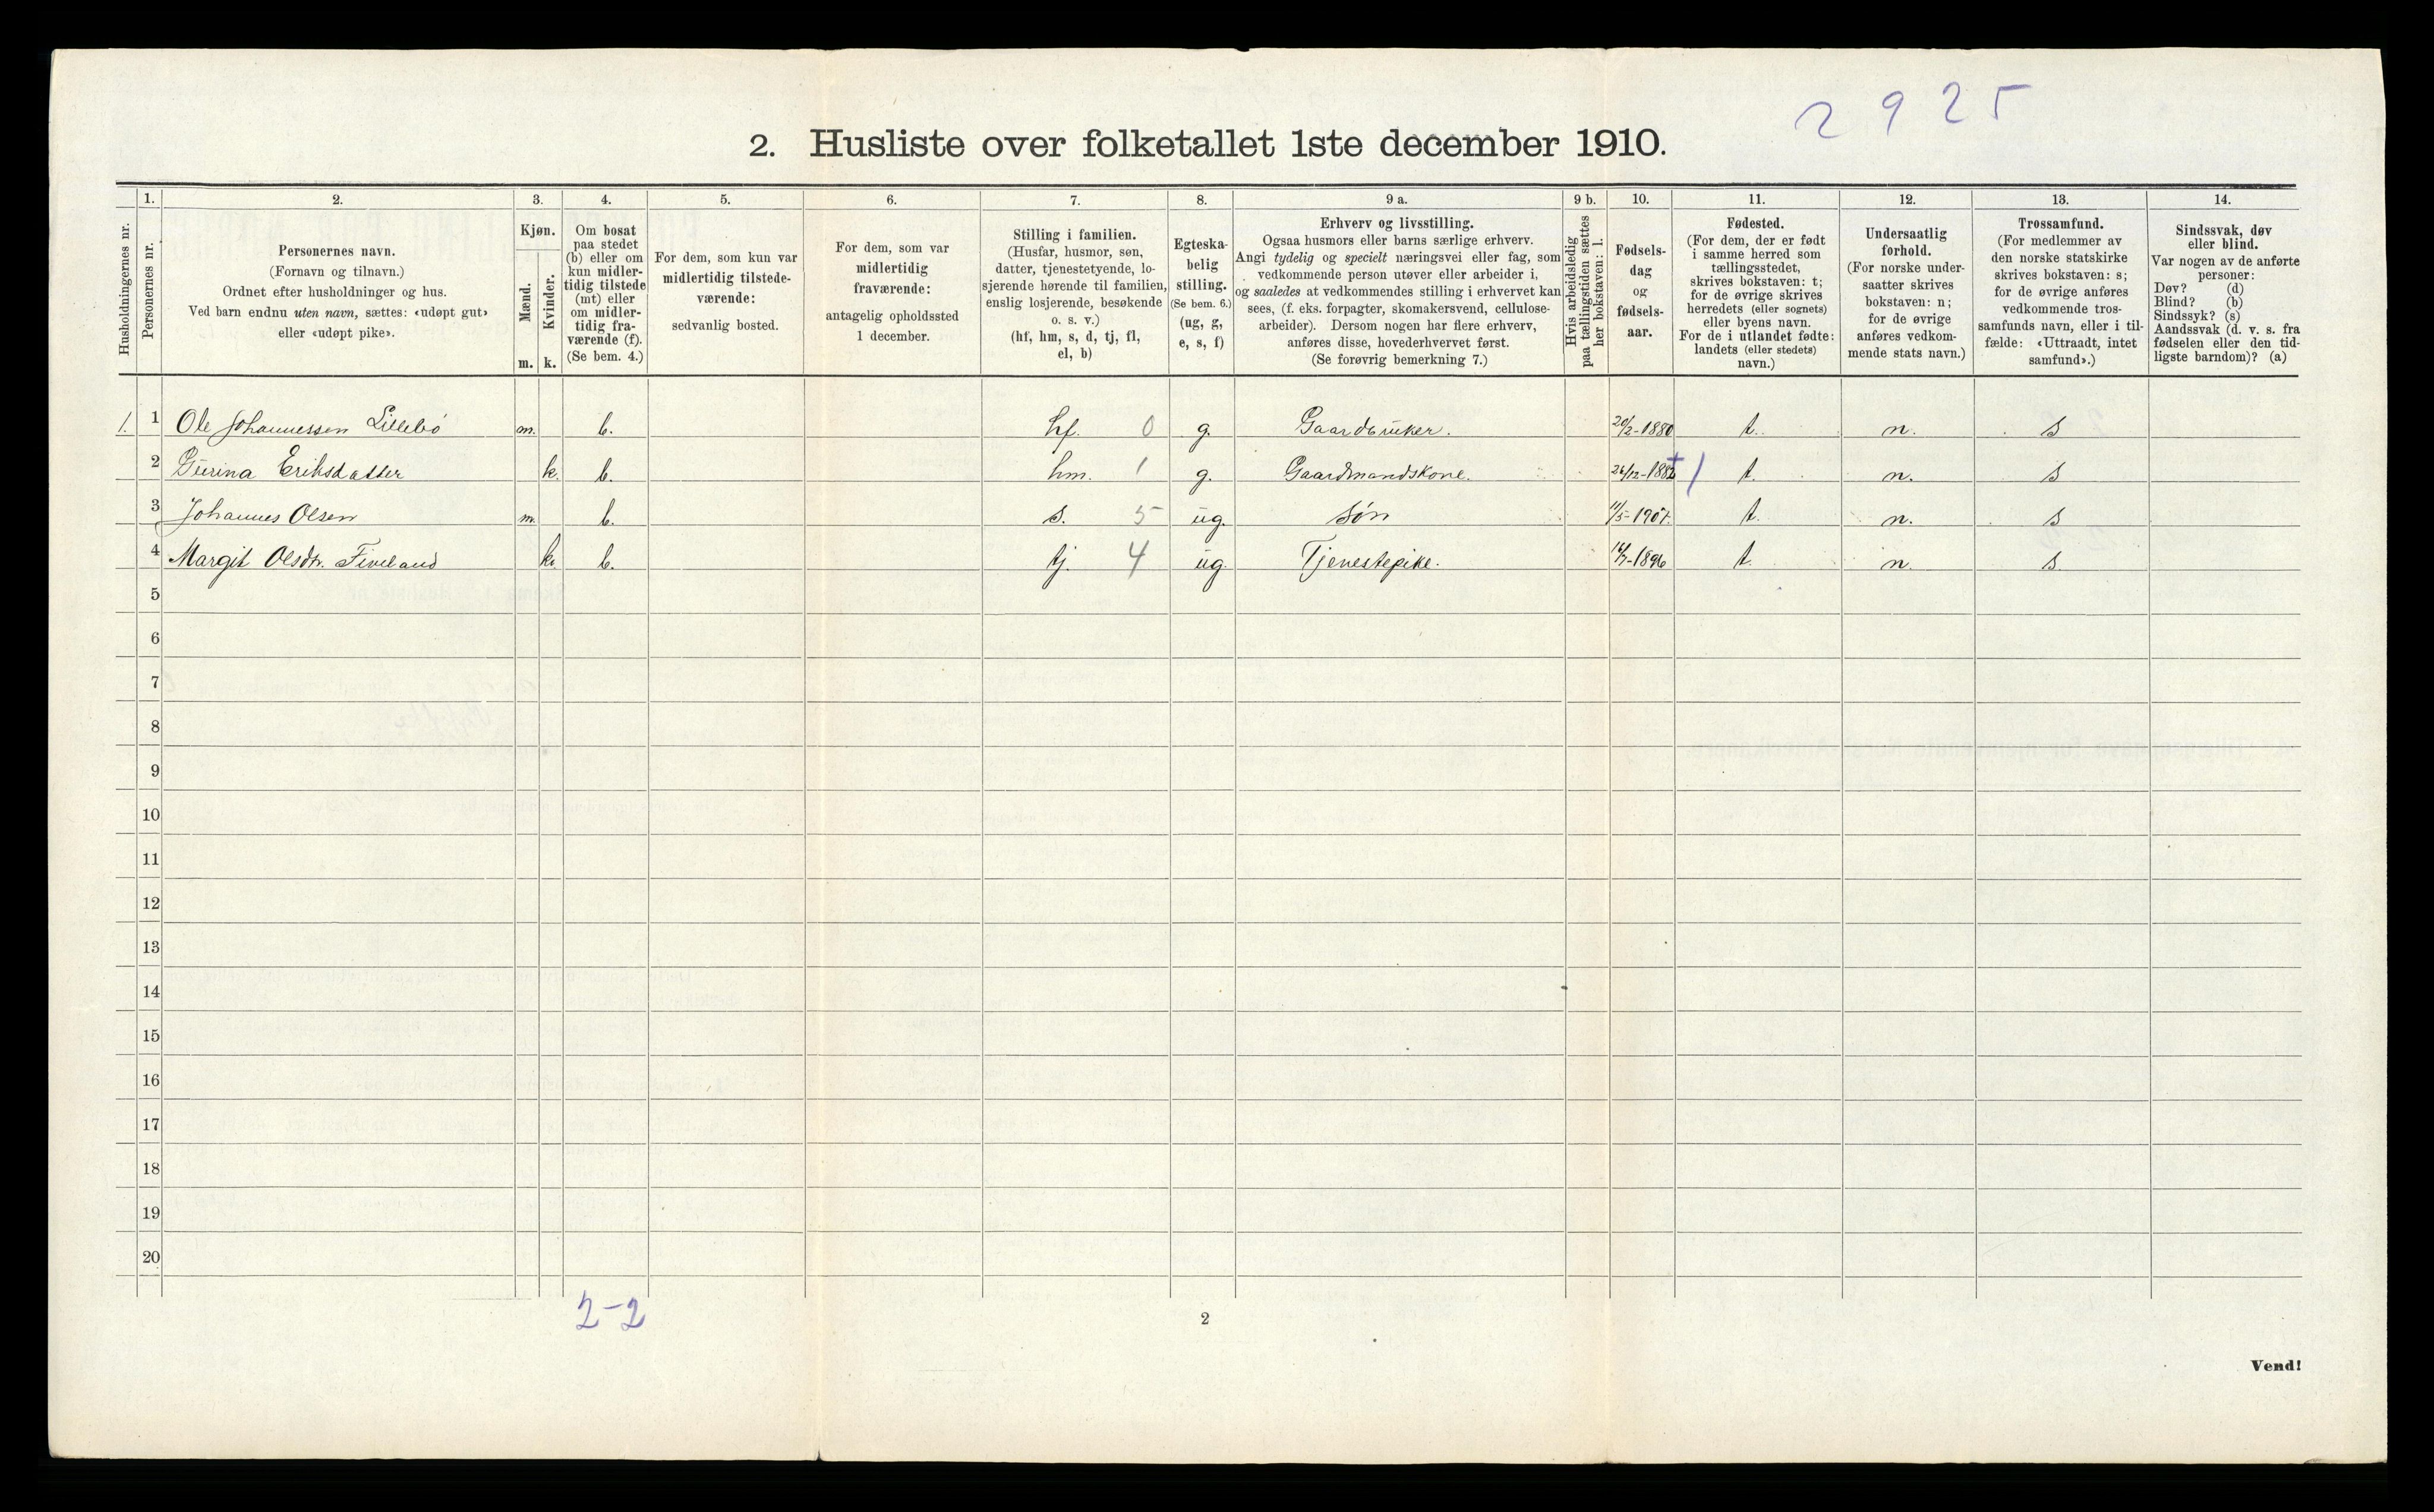 2 9 2 5
2. Husliste over folketallet 1ste december 1910.
Husholdningernes nr.
1.
Personernes nr.
2.
Personernes navn.
(Fornavn og tilnavn.)
Ordnet efter husholdninger og hus.
Ved barn endnu uten navn, sættes: «udøpt gut»
eller «udøpt pike».
3.
Kjøn.
Mænd.
Kvinder.
m. k.
4.
Om bosat
paa stedet
(b) eller om
kun midler-
tidig tilstede
(mt) eller
om midler-
tidig fra-
værende (f).
(Se bem. 4.)
5.
For dem, som kun var
midlertidig tilstede-
værende:
sedvanlig bosted.
6.
For dem, som var
midlertidig
fraværende:
antagelig opholdssted
1 december.
7.
Stilling i familien.
(Husfar, husmor, søn,
datter, tjenestetyende, lo-
sjerende hørende til familien,
enslig losjerende, besøkende
o. s. v.)
(hf, hm, s, d, tj, fl,
el, b)
8.
Egteska-
belig
stilling.
(Se bem. 6.)
(ug, g,
e, s, f)
9 a.
Erhverv og livsstilling.
Ogsaa husmors eller barns særlige erhverv.
Angi tydelig og specielt næringsvei eller fag, som
vedkommende person utøver eller arbeider i,
og saaledes at vedkommendes stilling i erhvervet kan
sees, (f. eks. forpagter, skomakersvend, cellulose-
arbeider). Dersom nogen har flere erhverv,
anføres disse, hovederhvervet først.
(Se forøvrig bemerkning 7.)
9 b.
Hvis arbeidsledig
paa tællingstiden sættes
her bokstaven: l.
10.
Fødsels-
dag
og
fødsels-
aar.
11.
Fødested.
(For dem, der er født
i samme herred som
tællingsstedet,
skrives bokstaven: t;
for de øvrige skrives
herredets (eller sognets)
eller byens navn.
For de i utlandet fødte:
landets (eller stedets)
navn.)
12.
Undersaatlig
forhold.
(For norske under-
saatter skrives
bokstaven: n;
for de øvrige
anføres vedkom-
mende stats navn.)
13.
Trossamfund.
(For medlemmer av
den norske statskirke
skrives bokstaven: s;
for de øvrige anføres
vedkommende tros-
samfunds navn, eller i til-
fælde: «Uttraadt, intet
samfund».)
14.
Sindssvak, døv
eller blind.
Var nogen av de anførte
personer:
Døv? (d)
Blind? (b)
Sindssyk? (s)
Aandssvak (d. v. s. fra
fødselen eller den tid-
ligste barndom)? (a)
1. 1 Ole Johannessen Lillebö m. b. hf. 0 g. Gaardbruker. 20/2-1880 t. n. s
2 Gurina Eriksdatter k. b. hm. 1 g. Gaardmandskone. 26/12-1882 t. n. s
3 Johannes Olsen m. b. s. 5 ug. Sön 11/5-1907. t. n. s
4 Margit Olsdtr. Fiveland k. b. tj. 4 ug. Tjenestepike. 1896 t. n. s.
5
6
7
8
9
10
11
12
13
14
15
16
17
18
19
20
2-2
2
Vend!